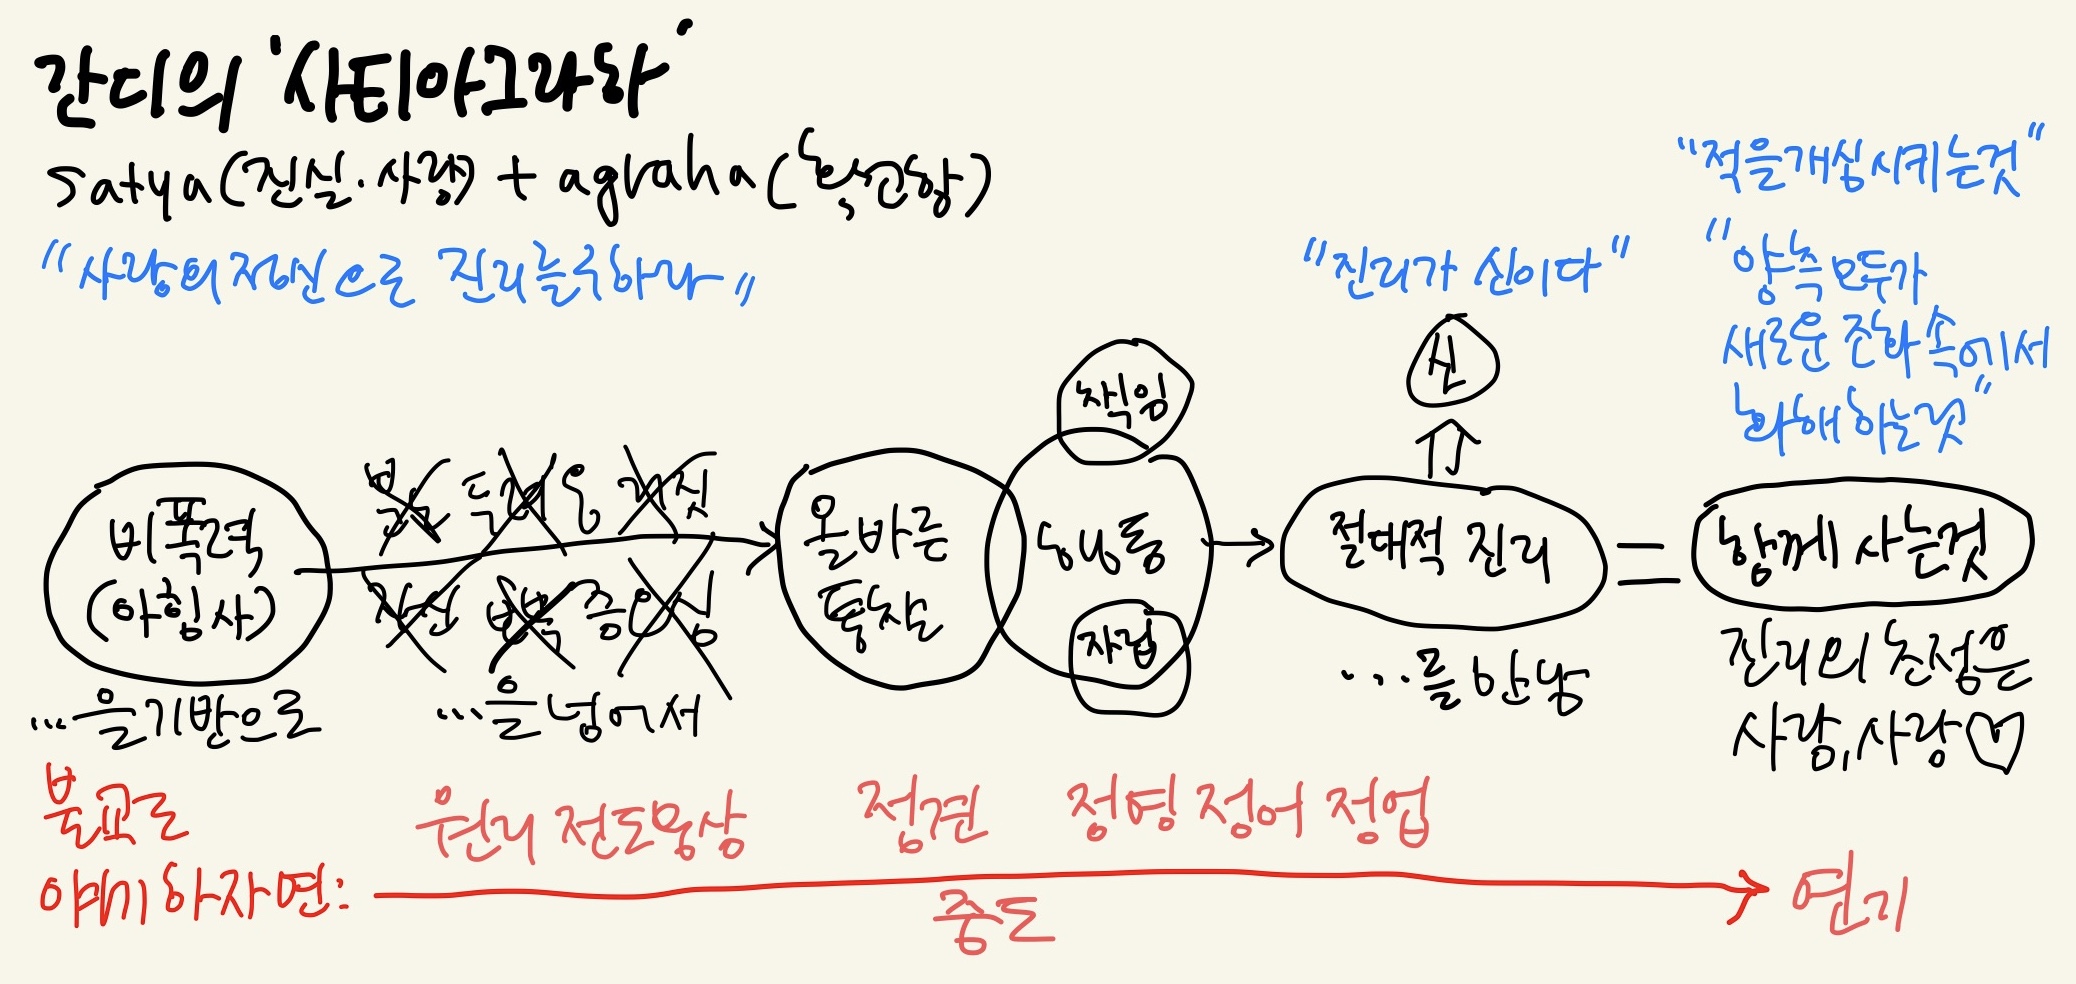 간디의 '사티아그라하'
satya(진실·사랑) + agraha(확언함)
"사랑의 저편으로 진리를 구하라"
"진리가 신이다"
"적을 개심시키는것"
"양측 모두가
새로운 조화 속에서
화해하는것"
신
책임
비폭력
(아힘사)
...을 기반으로
거짓
...을 넘어서
올바른
통찰
행동
자립
절대적 진리
...를 만남
=
함께 사는것
진리의 초점은
사람, 사랑♡
불교로
얘기하자면:
원리전도몽상
정견
정명 정어 정업
중도
연기